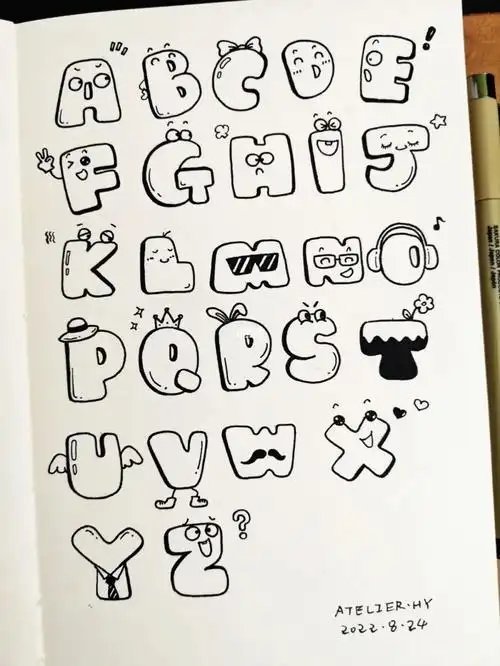 A B C D E !
F G H I J
K L M N O
P Q R S T
U V W X
Y Z ?
ATELIER·HY
2022·8·24